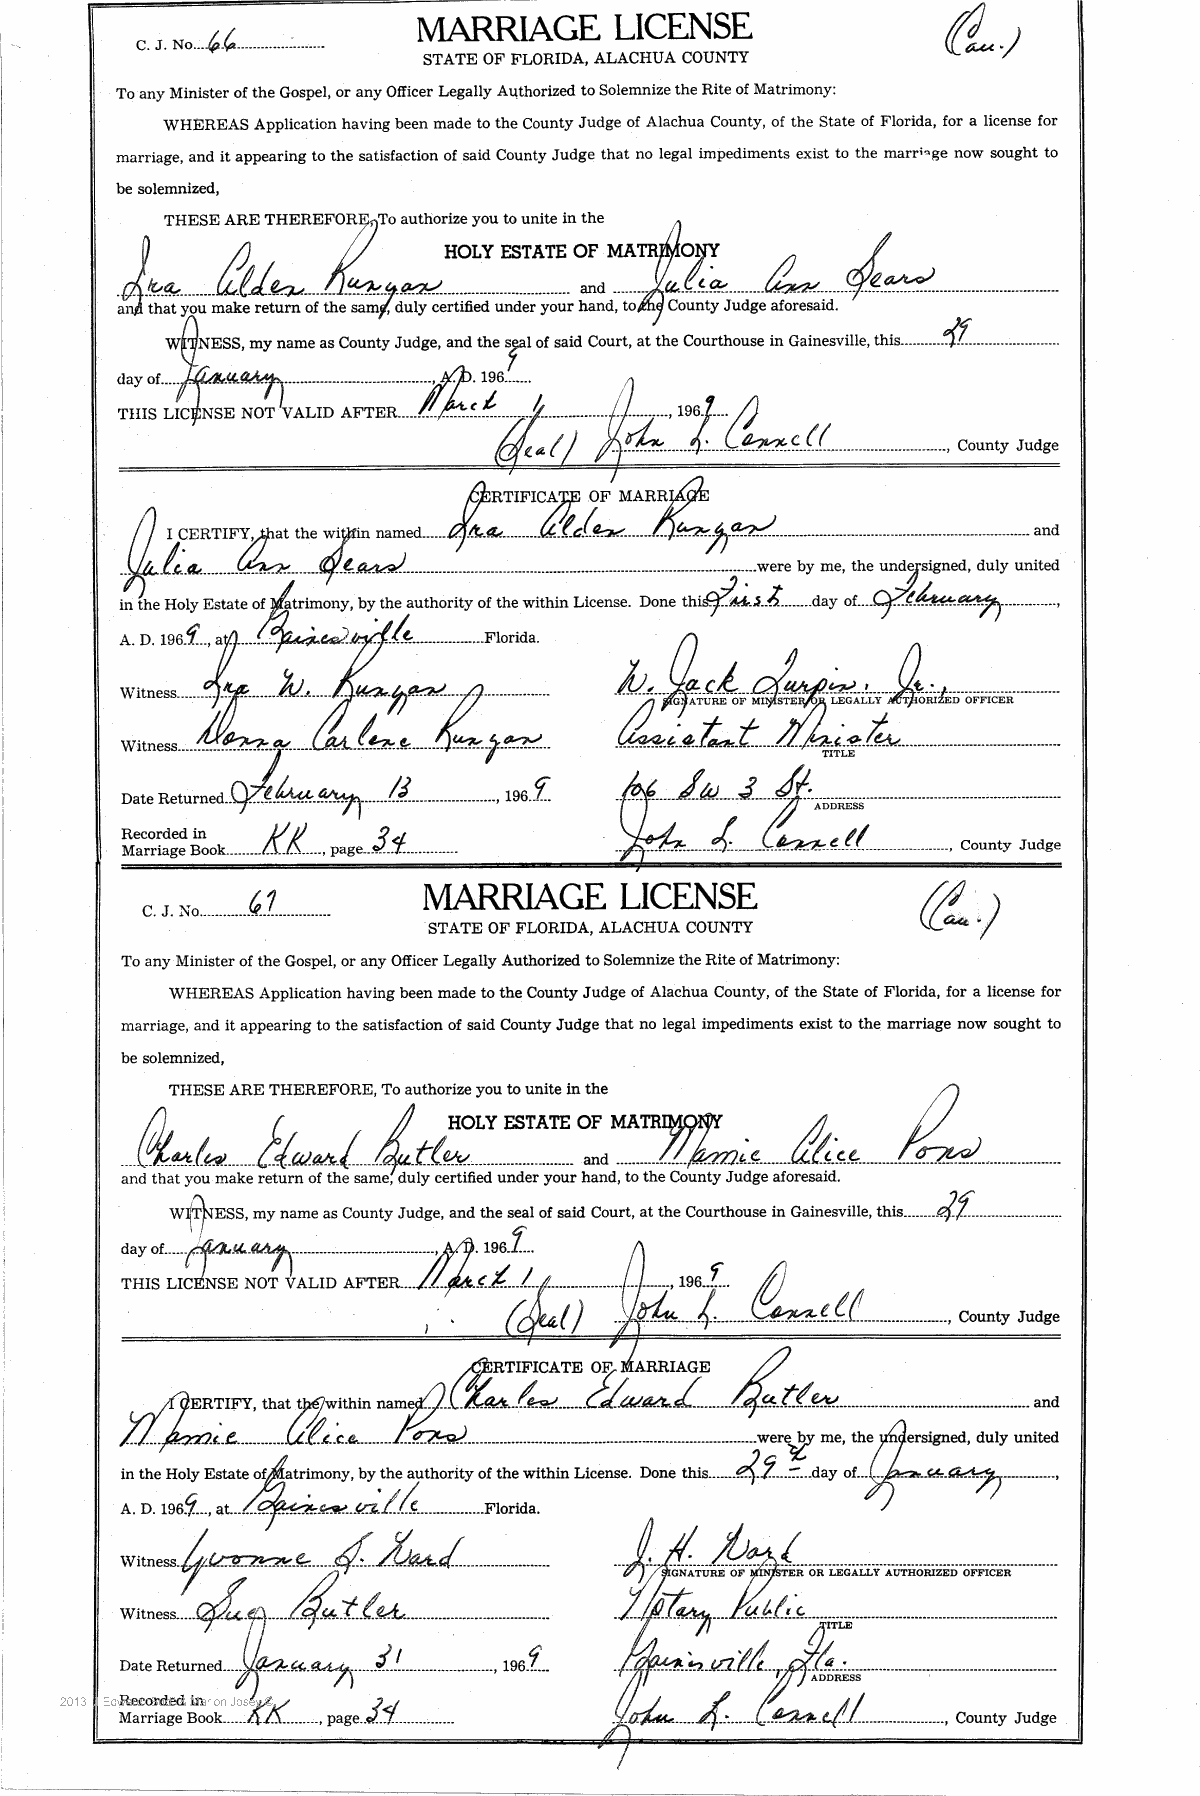 C. J. No. 66 MARRIAGE LICENSE (Cau.)
STATE OF FLORIDA, ALACHUA COUNTY
To any Minister of the Gospel, or any Officer Legally Authorized to Solemnize the Rite of Matrimony:
WHEREAS Application having been made to the County Judge of Alachua County, of the State of Florida, for a license for
marriage, and it appearing to the satisfaction of said County Judge that no legal impediments exist to the marriage now sought to
be solemnized,
THESE ARE THEREFORE, To authorize you to unite in the
HOLY ESTATE OF MATRIMONY
Ira Alden Runyan and Julia Ann Sears
and that you make return of the same, duly certified under your hand, to the County Judge aforesaid.
WITNESS, my name as County Judge, and the seal of said Court, at the Courthouse in Gainesville, this 29
day of January, A. D. 1969
THIS LICENSE NOT VALID AFTER March 1, 1969
(Seal) John L. Connell, County Judge
CERTIFICATE OF MARRIAGE
I CERTIFY, that the within named Ira Alden Runyan and
Julia Ann Sears were by me, the undersigned, duly united
in the Holy Estate of Matrimony, by the authority of the within License. Done this First day of February,
A. D. 1969, at Gainesville Florida.
Witness Ira W. Runyan W. Jack Turpin, Jr.,
SIGNATURE OF MINISTER OR LEGALLY AUTHORIZED OFFICER
Witness Donna Carlene Runyan Assistant Minister
TITLE
Date Returned February 13, 1969 106 SW 3 St.
ADDRESS
Recorded in
Marriage Book KK, page 34 John L. Connell, County Judge
C. J. No. 67 MARRIAGE LICENSE (Cau.)
STATE OF FLORIDA, ALACHUA COUNTY
To any Minister of the Gospel, or any Officer Legally Authorized to Solemnize the Rite of Matrimony:
WHEREAS Application having been made to the County Judge of Alachua County, of the State of Florida, for a license for
marriage, and it appearing to the satisfaction of said County Judge that no legal impediments exist to the marriage now sought to
be solemnized,
THESE ARE THEREFORE, To authorize you to unite in the
HOLY ESTATE OF MATRIMONY
Charles Edward Butler and Mamie Alice Pons
and that you make return of the same, duly certified under your hand, to the County Judge aforesaid.
WITNESS, my name as County Judge, and the seal of said Court, at the Courthouse in Gainesville, this 29
day of January, A. D. 1969
THIS LICENSE NOT VALID AFTER March 1, 1969
(Seal) John L. Connell, County Judge
CERTIFICATE OF MARRIAGE
I CERTIFY, that the within named Charles Edward Butler and
Mamie Alice Pons were by me, the undersigned, duly united
in the Holy Estate of Matrimony, by the authority of the within License. Done this 29th day of January,
A. D. 1969, at Gainesville Florida.
Witness Yvonne S. Ward J. H. Ward
SIGNATURE OF MINISTER OR LEGALLY AUTHORIZED OFFICER
Witness Sug Butler Notary Public
TITLE
Date Returned January 31, 1969 Gainesville, Fla.
ADDRESS
2013 Recorded in
Marriage Book KK, page 34 John L. Connell, County Judge